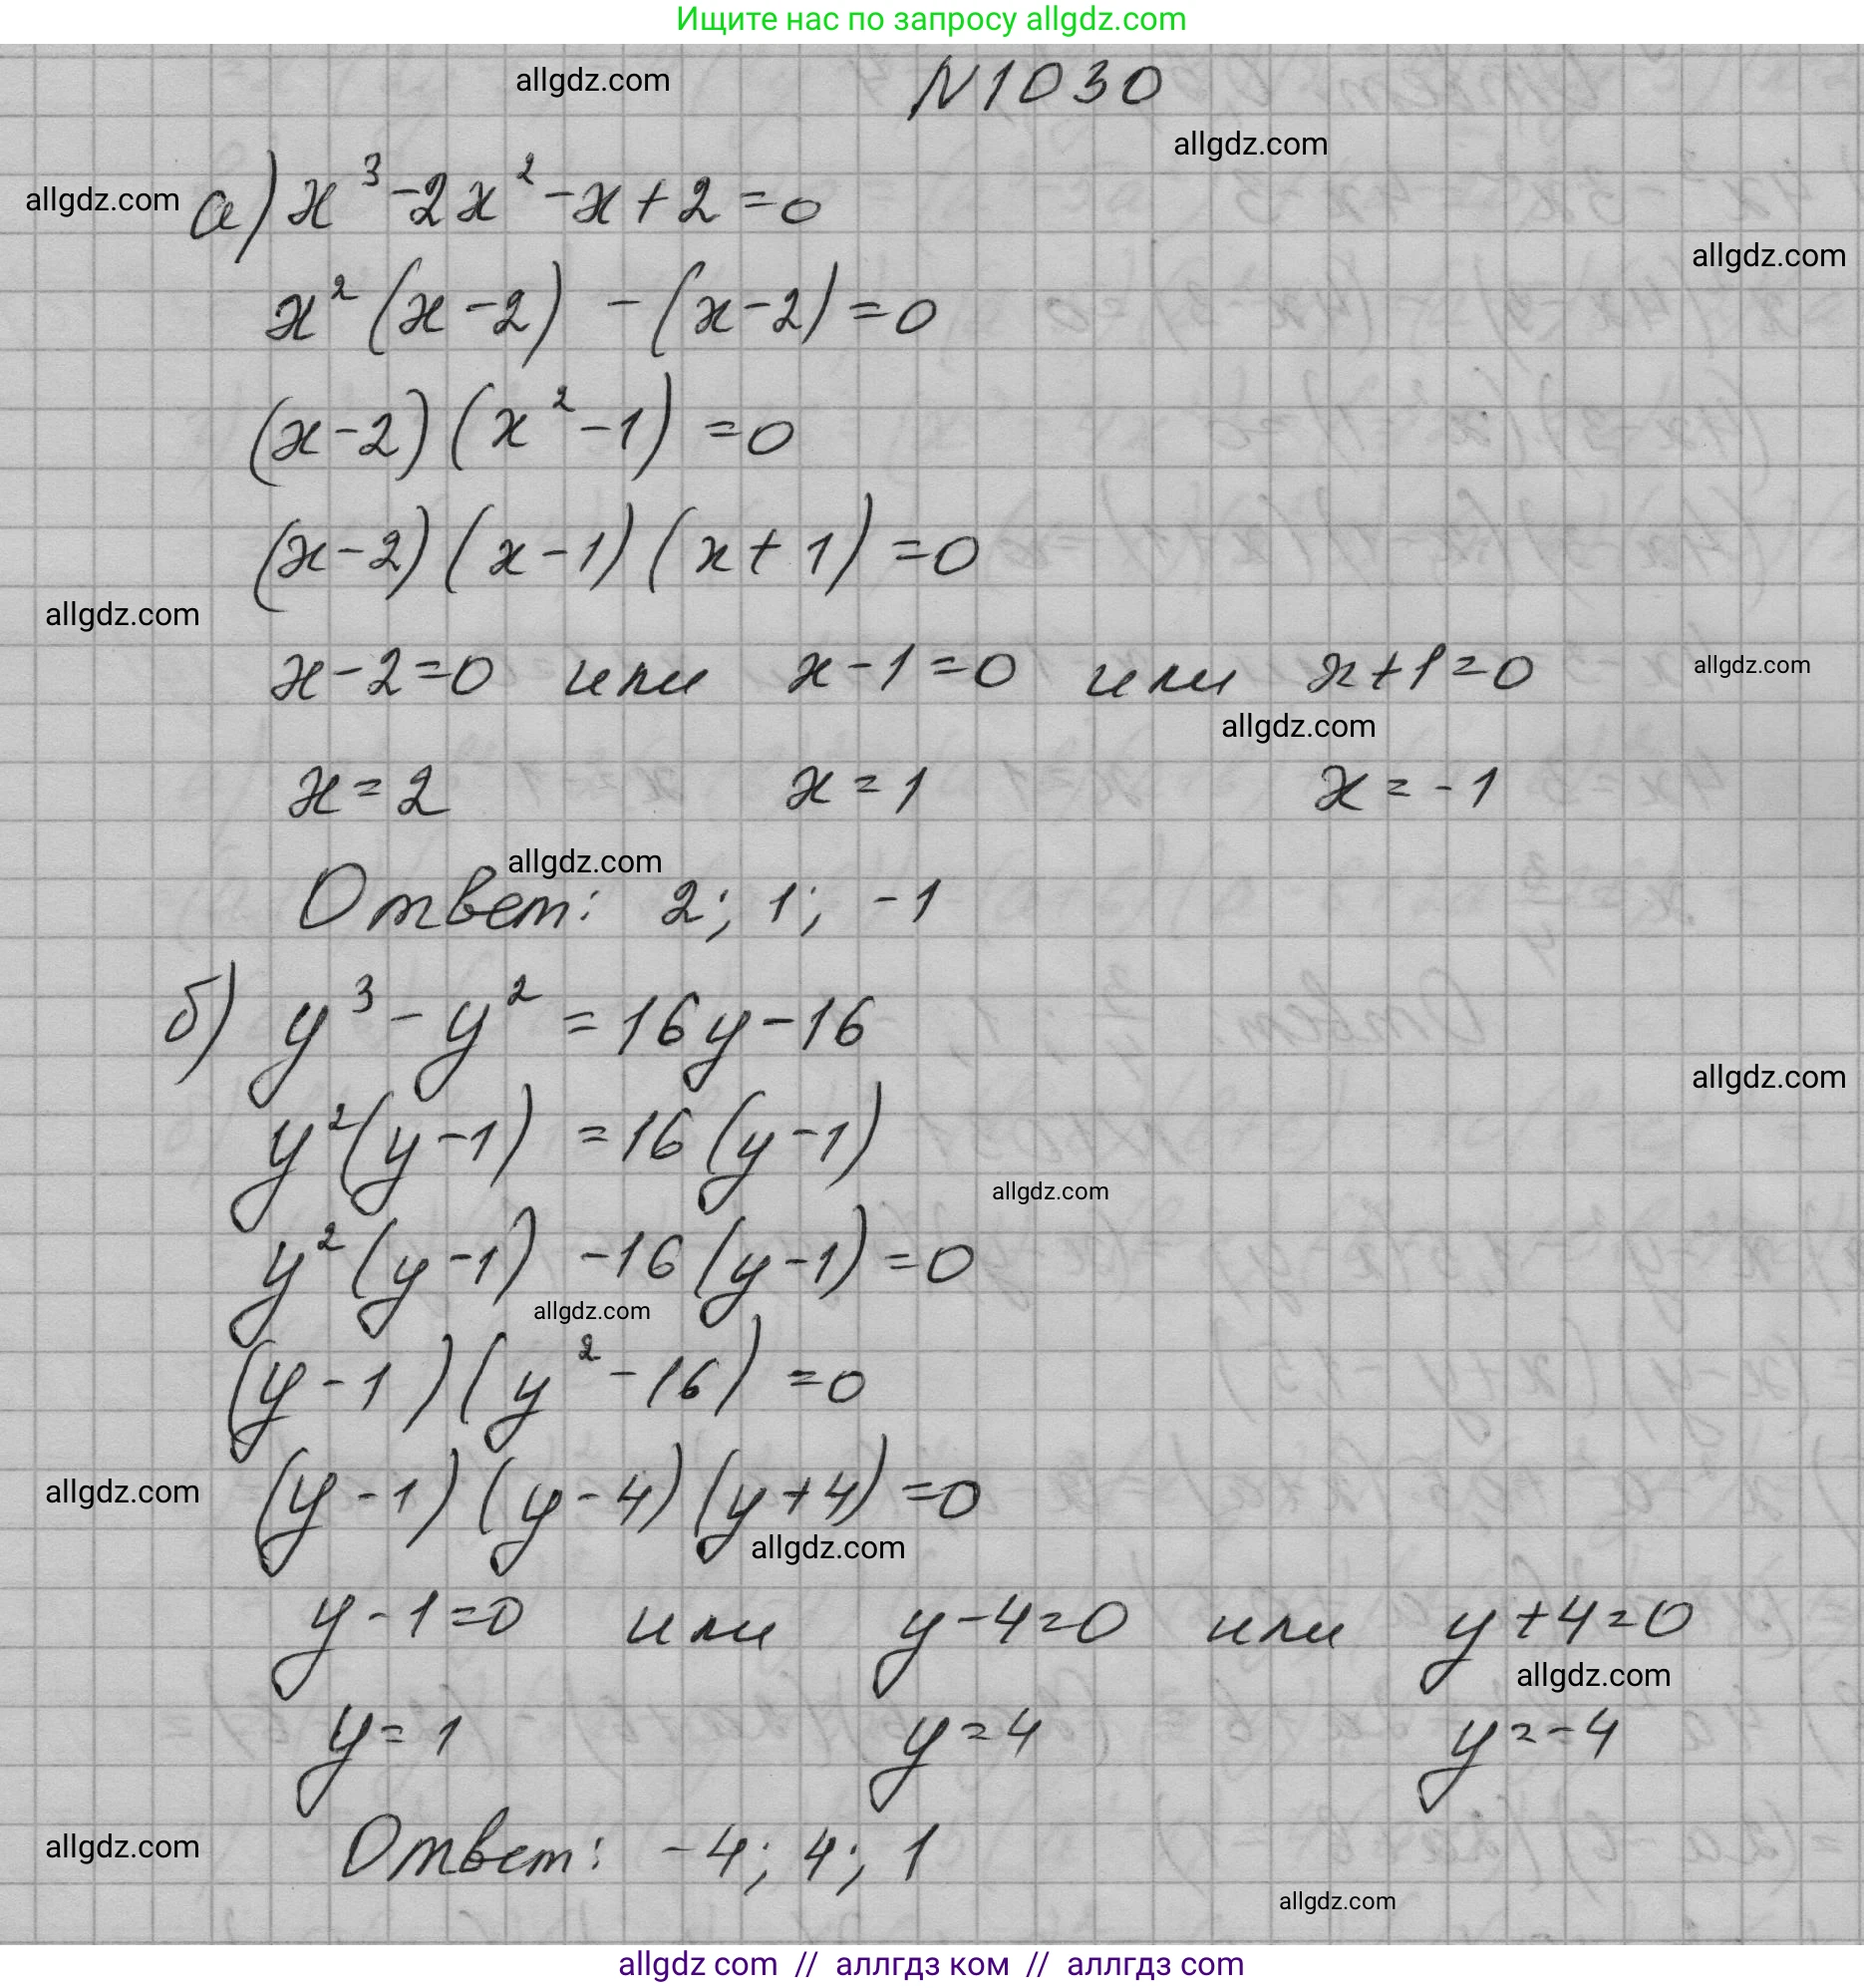 Ищите нас по запросу allgdz.com
allgdz.com
N1030
allgdz.com
allgdz.com
а) x³-2x²-x+2=0
allgdz.com
x²(x-2) -(x-2)=0
(x-2)(x²-1)=0
(x-2)(x-1)(x+1)=0
allgdz.com
x-2=0 или x-1=0 или x+1=0
allgdz.com
allgdz.com
x=2 x=1 x=-1
allgdz.com
Ответ: 2; 1; -1
б) y³-y²=16y-16
allgdz.com
y²(y-1)=16(y-1)
allgdz.com
y²(y-1)-16(y-1)=0
allgdz.com
(y-1)(y²-16)=0
allgdz.com
(y-1)(y-4)(y+4)=0
allgdz.com
y-1=0 или y-4=0 или y+4=0
allgdz.com
y=1 y=4 y=-4
allgdz.com
Ответ: -4; 4; 1
allgdz.com
allgdz com // аллгдз ком // аллгдз com